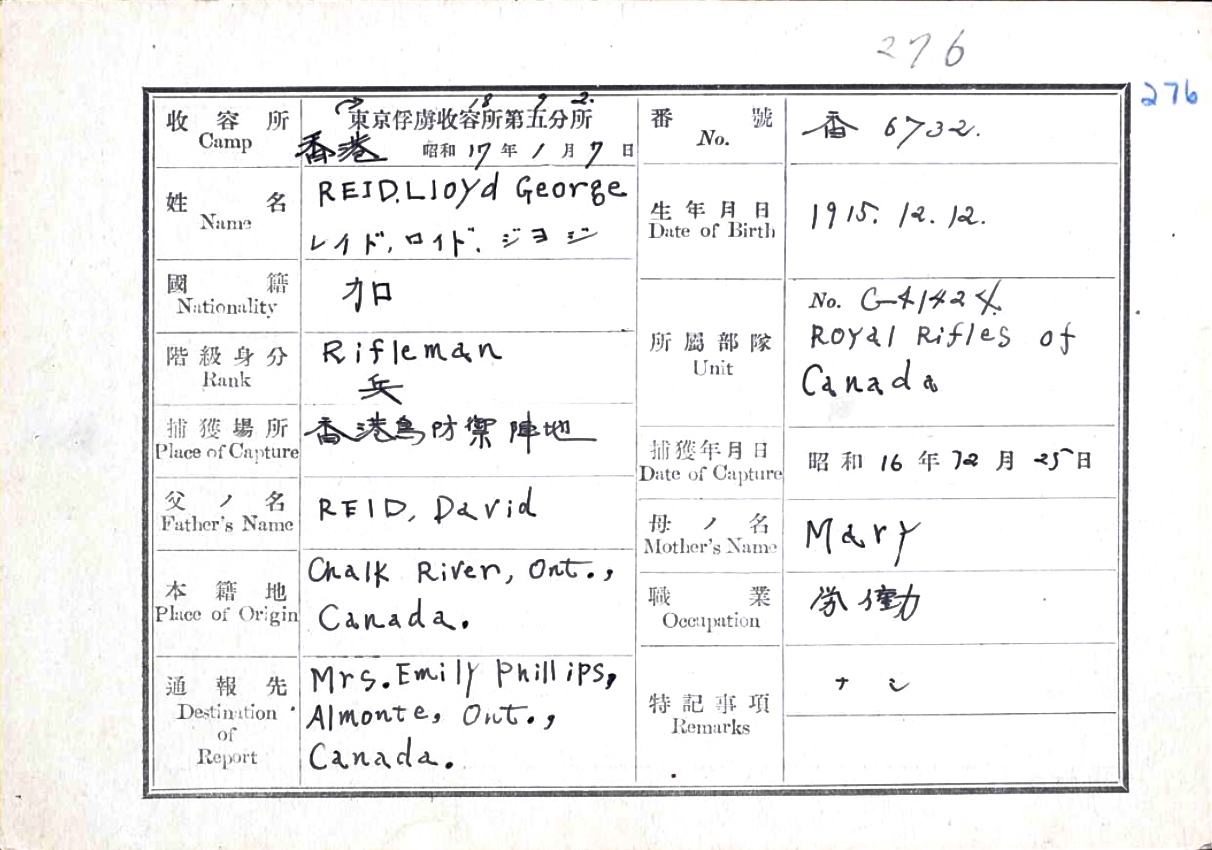 276
276
收容所
Camp
18 9 2.
東京俘虜收容所第五分所
香港 昭和17年1月7日
番號
No.
香 6732.
姓名
Name
REID, Lloyd George
レイド, ロイド, ジヨジ
生年月日
Date of Birth
1915. 12. 12.
國籍
Nationality
加
階級身分
Rank
Rifleman
兵
所屬部隊
Unit
No. G-41424
Royal Rifles of
Canada
捕獲場所
Place of Capture
香港島防禦陣地
捕獲年月日
Date of Capture
昭和16年12月25日
父ノ名
Father's Name
REID, David
母ノ名
Mother's Name
Mary
本籍地
Place of Origin
Chalk River, Ont.,
Canada.
職業
Occupation
労働
通報先
Destination
of
Report
Mrs. Emily Phillips,
Almonte, Ont.,
Canada.
特記事項
Remarks
ナシ